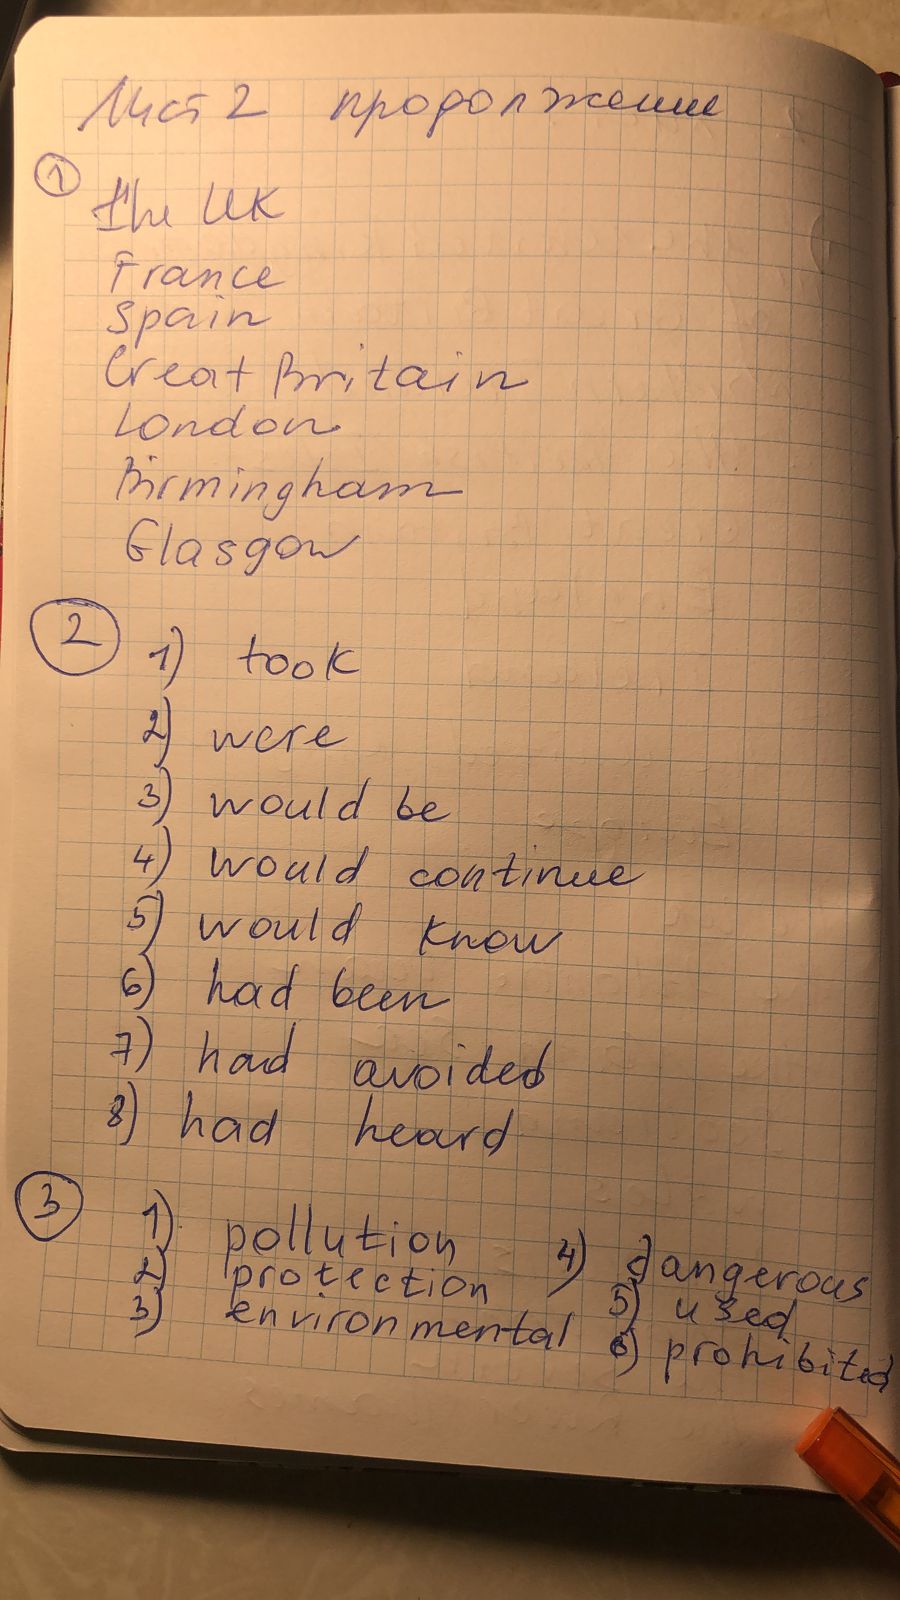 Лист 2 продолжение
1
The UK
France
Spain
Great Britain
London
Birmingham
Glasgow
2
1) took
2) were
3) would be
4) would continue
5) would know
6) had been
7) had avoided
8) had heard
3
1) pollution
2) protection
3) environmental
4) dangerous
5) used
6) prohibited